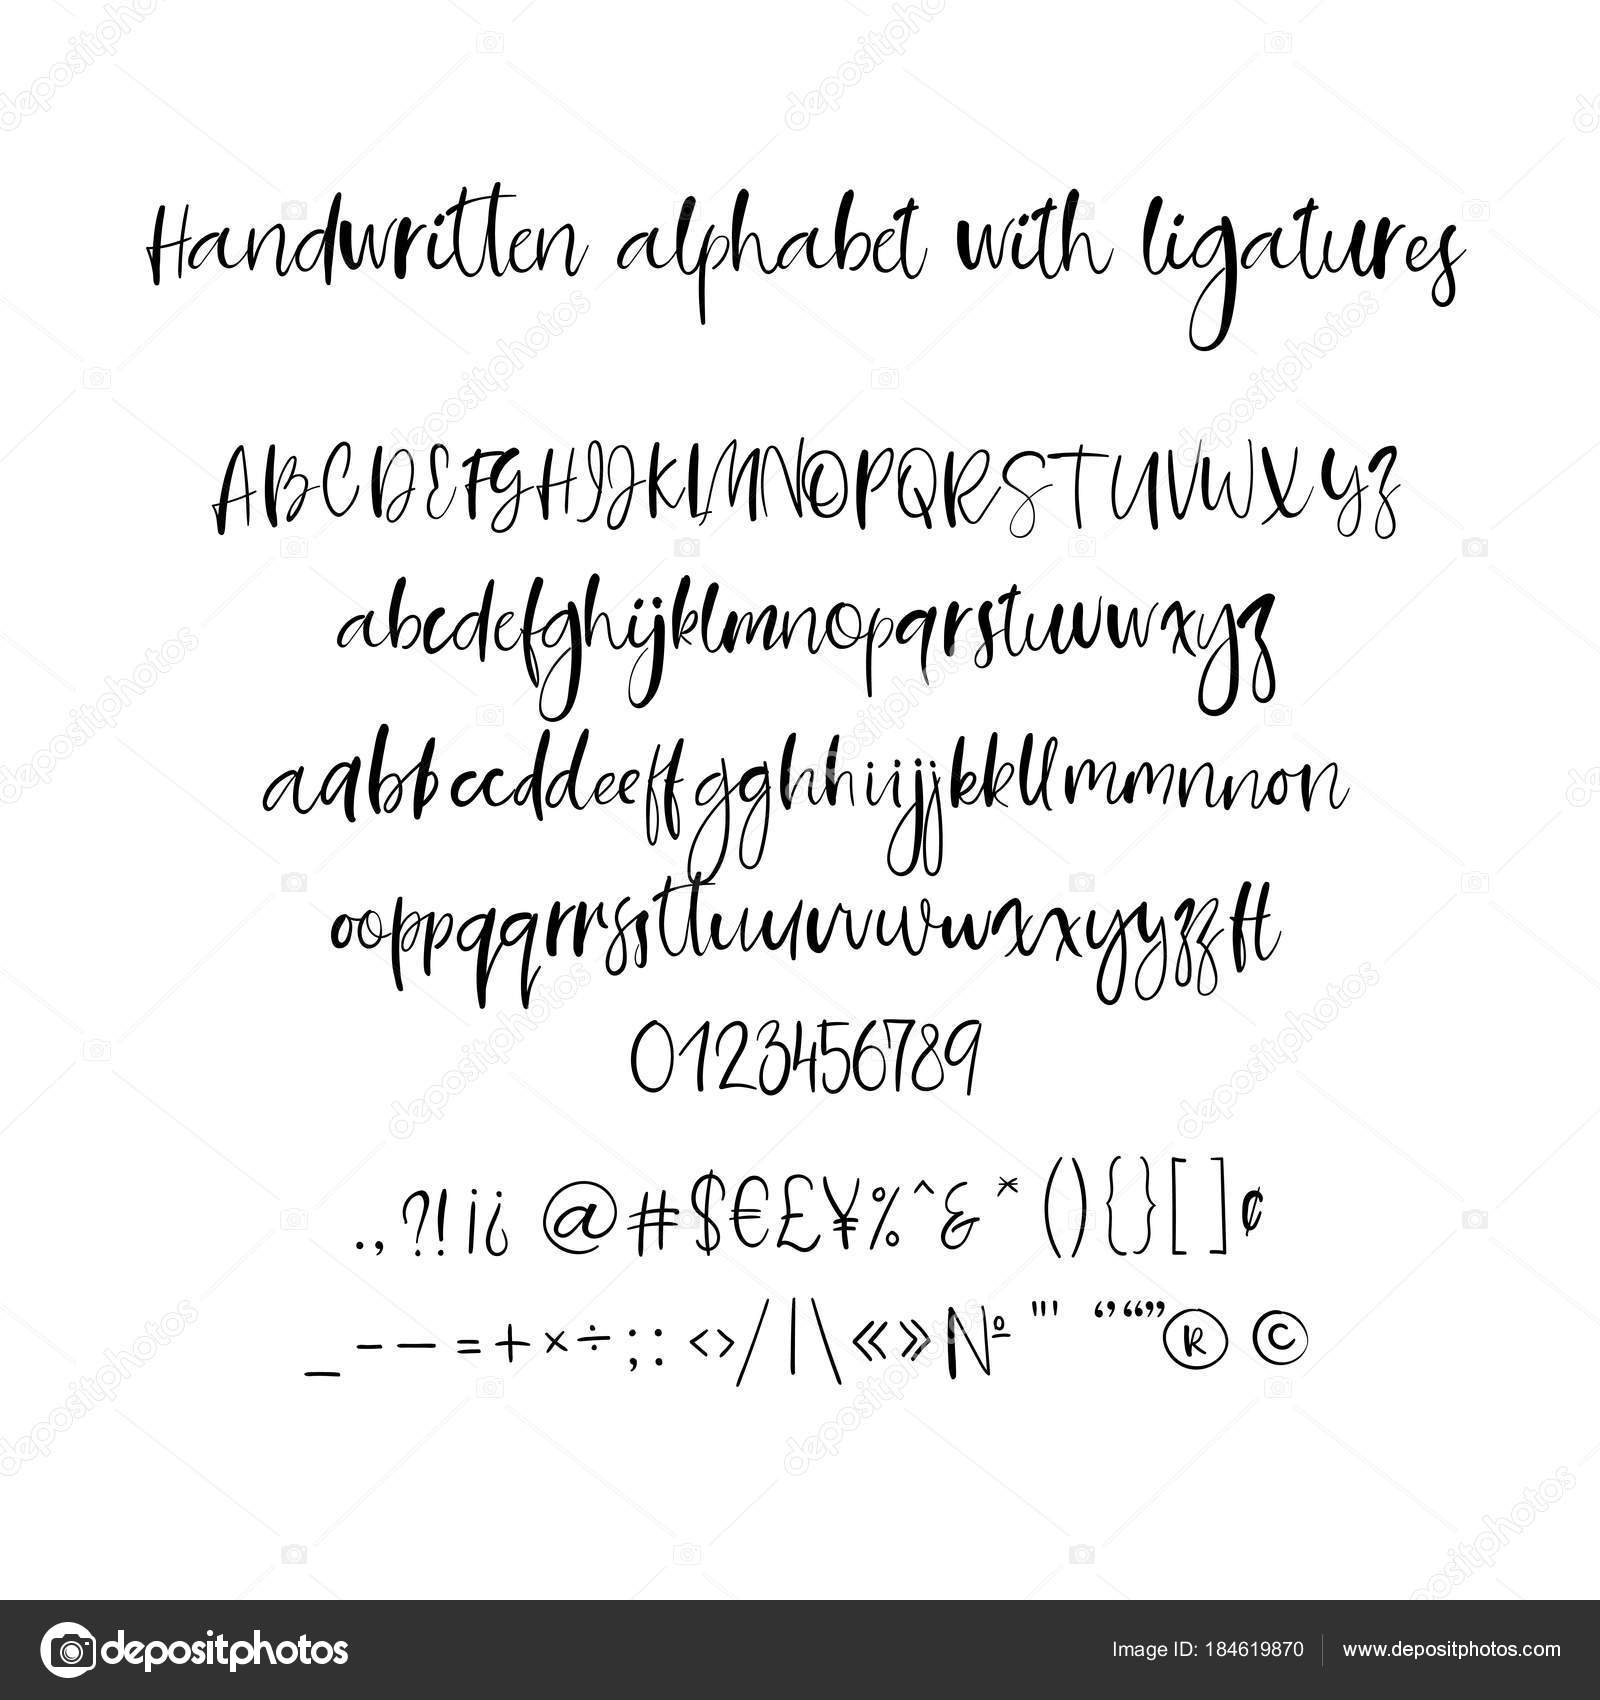 Handwritten alphabet with ligatures
ABCDEFGHIJKLMNOPQRSTUVWXYZ
abcdefghijklmnopqrstuvwxyz
aabbccddeeffgghhiijjkkllmmnnon
ooppqqrrssttuuvvwwxxyyzzft
0123456789
.,?!¡¿ @#$€£¥%^&*(){}[]¢
_-—=+×÷;:<>/|\«»№"'" ‘’“”® ©
depositphotos
Image ID: 184619870 www.depositphotos.com